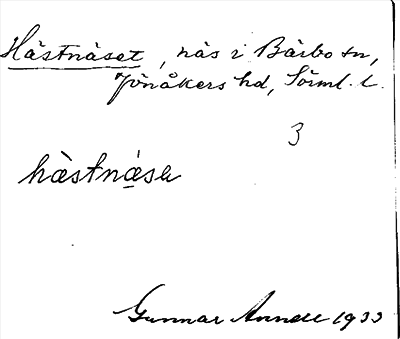 Hästnäset, näs i Bärbo sn,
Jönåkers hd, Sörml. l.
3
hæ̀stnæ̣sə
Gunnar Annell 1933